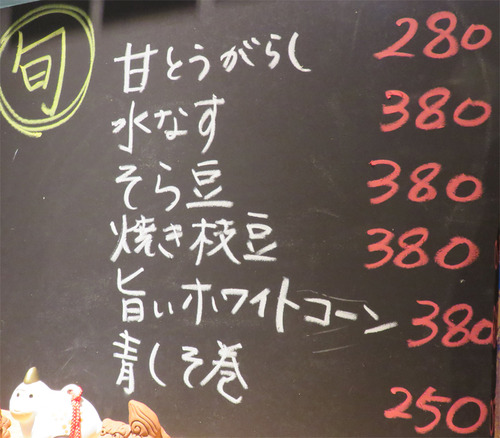 旬
甘とうがらし 280
水なす 380
そら豆 380
焼き枝豆 380
旨いホワイトコーン 380
青しそ巻 250